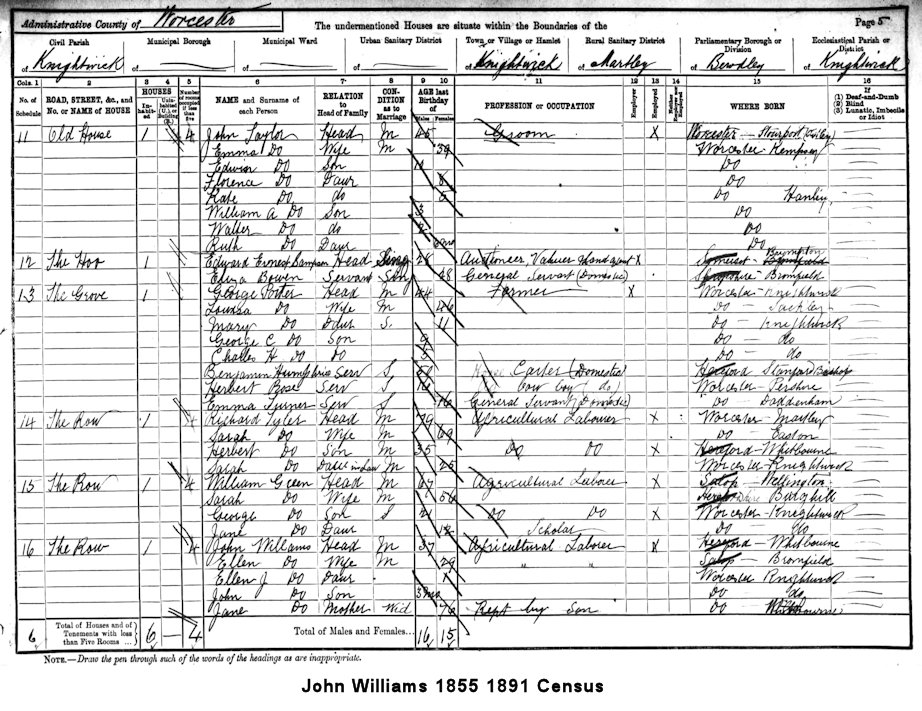 Administrative County of Worcester
The undermentioned Houses are situate within the Boundaries of the
Page 5
Civil Parish of Knightwick
Municipal Borough of
Municipal Ward of
Urban Sanitary District of
Town or Village or Hamlet of Knightwick
Rural Sanitary District of Martley
Parliamentary Borough or Division of Bewdley
Ecclesiastical Parish or District of Knightwick
Cols. 1 2 3 4 5 6 7 8 9 10 11 12 13 14 15 16
No. of Schedule
ROAD, STREET, &c., and No. or NAME of HOUSE
HOUSES
Inhabited
Uninhabited (U.), or Building (B.)
Number of rooms occupied if less than five
NAME and Surname of each Person
RELATION to Head of Family
CONDITION as to Marriage
AGE last Birthday of
Males Females
PROFESSION or OCCUPATION
Employer
Employed
Neither Employer nor Employed
WHERE BORN
If (1) Deaf-and-Dumb (2) Blind (3) Lunatic, Imbecile or Idiot
11 Old House 1 4 John Taylor Head M 45 Groom X Worcester - Stourport
Emma Do Wife M 39 Worcester Kempsey
Edwin Do Son Do
Florence Do Daur Do
Kate Do do Do Hanley
William A Do Son 3 Do
Walter Do do Do
Ruth Do Daur Do
12 The Hoo 1 Edward Ernest Head Sing 28 Auctioneer Valuer Land agent X Somerset
Eliza Bowen Servant Sing 28 General Servant (Domestic) Bromfield
13 The Grove 1 George Porter Head M 44 Farmer X Worcester - Knightwick
Louisa Do Wife M 46 Do
Mary Do Daur S. 11 Do - Knightwick
George C Do Son 9 Do - do
Charles H Do do Do - do
Benjamin Humphries Serv S Carter (Domestic) Hereford Stanford Bishop
Herbert Rose Serv S 16 Cow boy (do) Worcester - Pershore
Emma Turner Serv S 16 General Servant (Domestic) Do - Doddenham
14 The Row 1 4 Richard Tyler Head M 79 Agricultural Labourer X Worcester - Martley
Sarah Do Wife M 69 Do - Easton
Herbert Do Son M 35 Do Do X Hereford - Whitbourne
Sarah Do Daur in law M 25 Worcester - Knightwick
15 The Row 1 4 William Green Head M 67 Agricultural Labourer X Salop - Wellington
Sarah Do Wife M 56
George Do Son S 21 Do Do X Worcester - Knightwick
Jane Do Daur 12 Scholar Do do
16 The Row 1 4 John Williams Head M 37 Agricultural Laborer X Hereford - Whitbourne
Ellen Do Wife M 29 " " Salop Bromfield
Ellen J Do Daur 1 Worcester Knightwick
John Do Son 3 mos Do do
Jane Do Mother Wid 76 Kept by Son Do Whitbourne
6 Total of Houses and of Tenements with less than Five Rooms ... 6 — 4 Total of Males and Females... 16 15
NOTE.—Draw the pen through such of the words of the headings as are inappropriate.
John Williams 1855 1891 Census